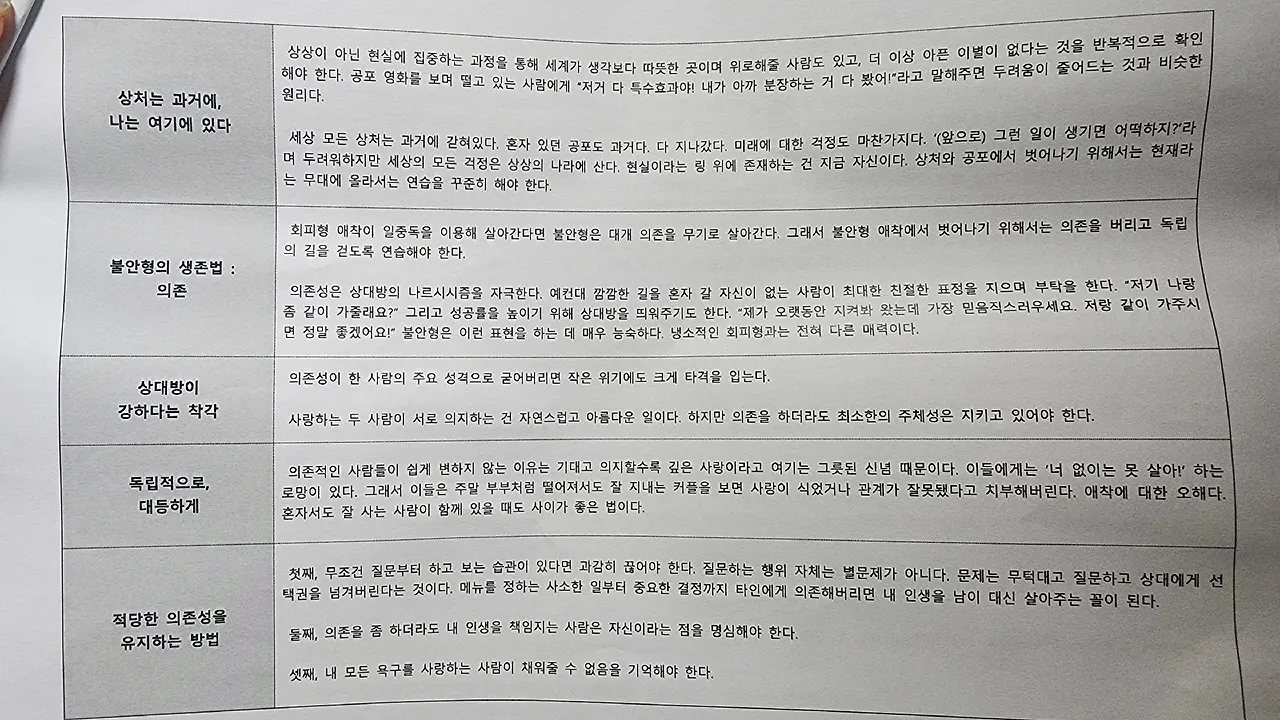 상처는 과거에,
나는 여기에 있다
상상이 아닌 현실에 집중하는 과정을 통해 세계가 생각보다 따뜻한 곳이며 위로해줄 사람도 있고, 더 이상 아픈 이별이 없다는 것을 반복적으로 확인
해야 한다. 공포 영화를 보며 떨고 있는 사람에게 "저거 다 특수효과야! 내가 아까 분장하는 거 다 봤어!"라고 말해주면 두려움이 줄어드는 것과 비슷한
원리다.
세상 모든 상처는 과거에 갇혀있다. 혼자 있던 공포도 과거다. 다 지나갔다. 미래에 대한 걱정도 마찬가지다. '(앞으로) 그런 일이 생기면 어떡하지?'라
며 두려워하지만 세상의 모든 걱정은 상상의 나라에 산다. 현실이라는 링 위에 존재하는 건 지금 자신이다. 상처와 공포에서 벗어나기 위해서는 현재라
는 무대에 올라서는 연습을 꾸준히 해야 한다.
불안형의 생존법 :
의존
회피형 애착이 일중독을 이용해 살아간다면 불안형은 대개 의존을 무기로 살아간다. 그래서 불안형 애착에서 벗어나기 위해서는 의존을 버리고 독립
의 길을 걷도록 연습해야 한다.
의존성은 상대방의 나르시시즘을 자극한다. 예컨대 깜깜한 길을 혼자 갈 자신이 없는 사람이 최대한 친절한 표정을 지으며 부탁을 한다. "저기 나랑
좀 같이 가줄래요?" 그리고 성공률을 높이기 위해 상대방을 띄워주기도 한다. "제가 오랫동안 지켜봐 왔는데 가장 믿음직스러우세요. 저랑 같이 가주시
면 정말 좋겠어요!" 불안형은 이런 표현을 하는 데 매우 능숙하다. 냉소적인 회피형과는 전혀 다른 매력이다.
상대방이
강하다는 착각
의존성이 한 사람의 주요 성격으로 굳어버리면 작은 위기에도 크게 타격을 입는다.
사랑하는 두 사람이 서로 의지하는 건 자연스럽고 아름다운 일이다. 하지만 의존을 하더라도 최소한의 주체성은 지키고 있어야 한다.
독립적으로,
대등하게
의존적인 사람들이 쉽게 변하지 않는 이유는 기대고 의지할수록 깊은 사랑이라고 여기는 그릇된 신념 때문이다. 이들에게는 '너 없이는 못 살아!' 하는
로망이 있다. 그래서 이들은 주말 부부처럼 떨어져서도 잘 지내는 커플을 보면 사랑이 식었거나 관계가 잘못됐다고 치부해버린다. 애착에 대한 오해다.
혼자서도 잘 사는 사람이 함께 있을 때도 사이가 좋은 법이다.
적당한 의존성을
유지하는 방법
첫째, 무조건 질문부터 하고 보는 습관이 있다면 과감히 끊어야 한다. 질문하는 행위 자체는 별문제가 아니다. 문제는 무턱대고 질문하고 상대에게 선
택권을 넘겨버린다는 것이다. 메뉴를 정하는 사소한 일부터 중요한 결정까지 타인에게 의존해버리면 내 인생을 남이 대신 살아주는 꼴이 된다.
둘째, 의존을 좀 하더라도 내 인생을 책임지는 사람은 자신이라는 점을 명심해야 한다.
셋째, 내 모든 욕구를 사랑하는 사람이 채워줄 수 없음을 기억해야 한다.